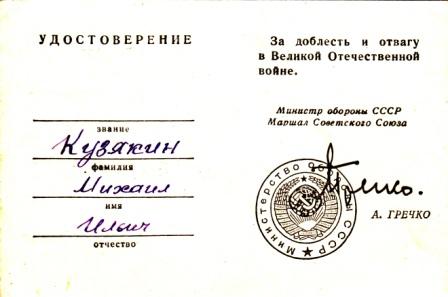 УДОСТОВЕРЕНИЕ
звание
Кузякин
фамилия
Михаил
имя
Ильич
отчество
За доблесть и отвагу
в Великой Отечественной
войне.
Министр обороны СССР
Маршал Советского Союза
Министерство обороны СССР
Гречко.
А. ГРЕЧКО